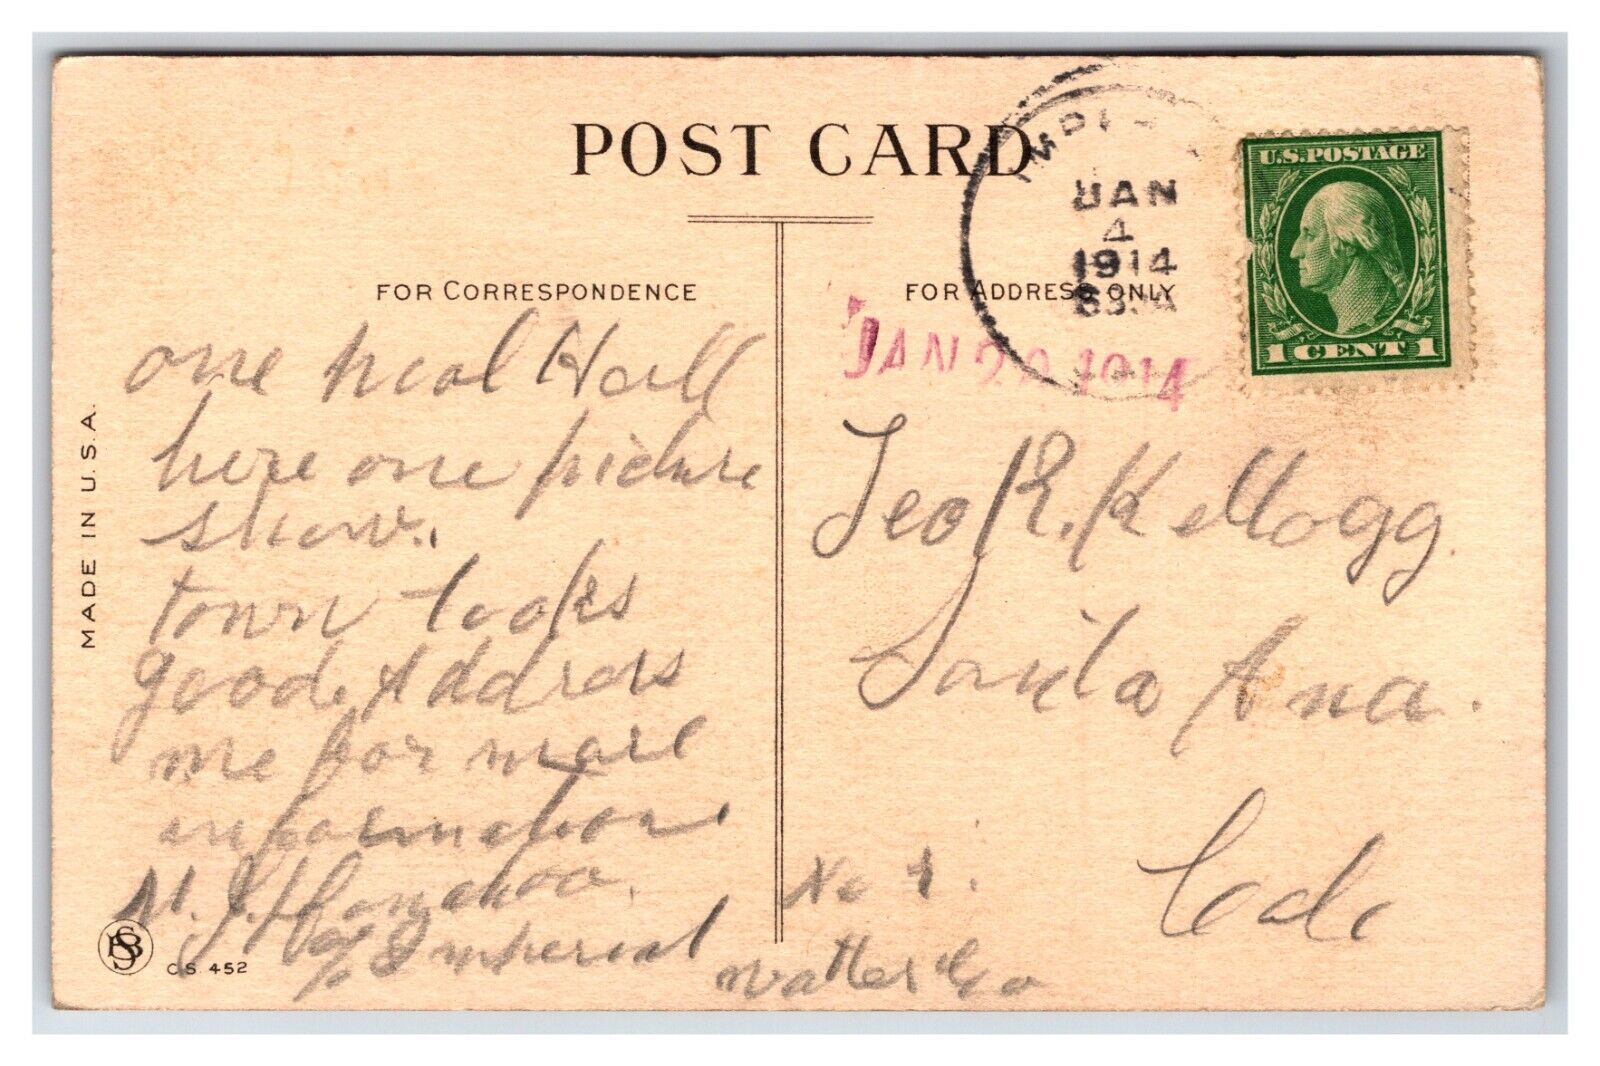 POST CARD
FOR CORRESPONDENCE
FOR ADDRESS ONLY
JAN
4
1914
JAN 20 1914
U.S. POSTAGE
1 CENT 1
MADE IN U.S.A.
one Hall
here one picture
show.
town looks
good Address
me for more
information
Imperial
Water Co
No 1.
Geo R. Kellogg.
Santa Ana.
Cal
C.S. 452